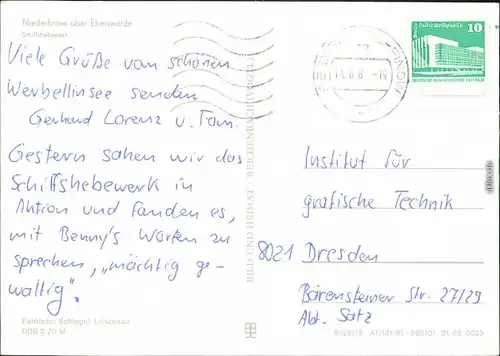 Niederfinow über Eberswalde
Schiffshebewerk
Viele Grüße vom schönen
Werbellinsee senden
Gerhard Lorenz u. Fam.
Gestern sahen wir das
Schiffshebewerk in
Aktion und fanden es,
mit Benny's Worten zu
sprechen, „mächtig ge-
waltig".
Farbfoto: Schlegel, 
DDR 0,20 M
BILD UND HEIMAT REICHENBACH (VOGTL)
10
Palast der Republik
DEUTSCHE DEMOKRATISCHE REPUBLIK
Institut für
grafische Technik
8021 Dresden
Bärensteiner Str. 27/29
Abt. Satz